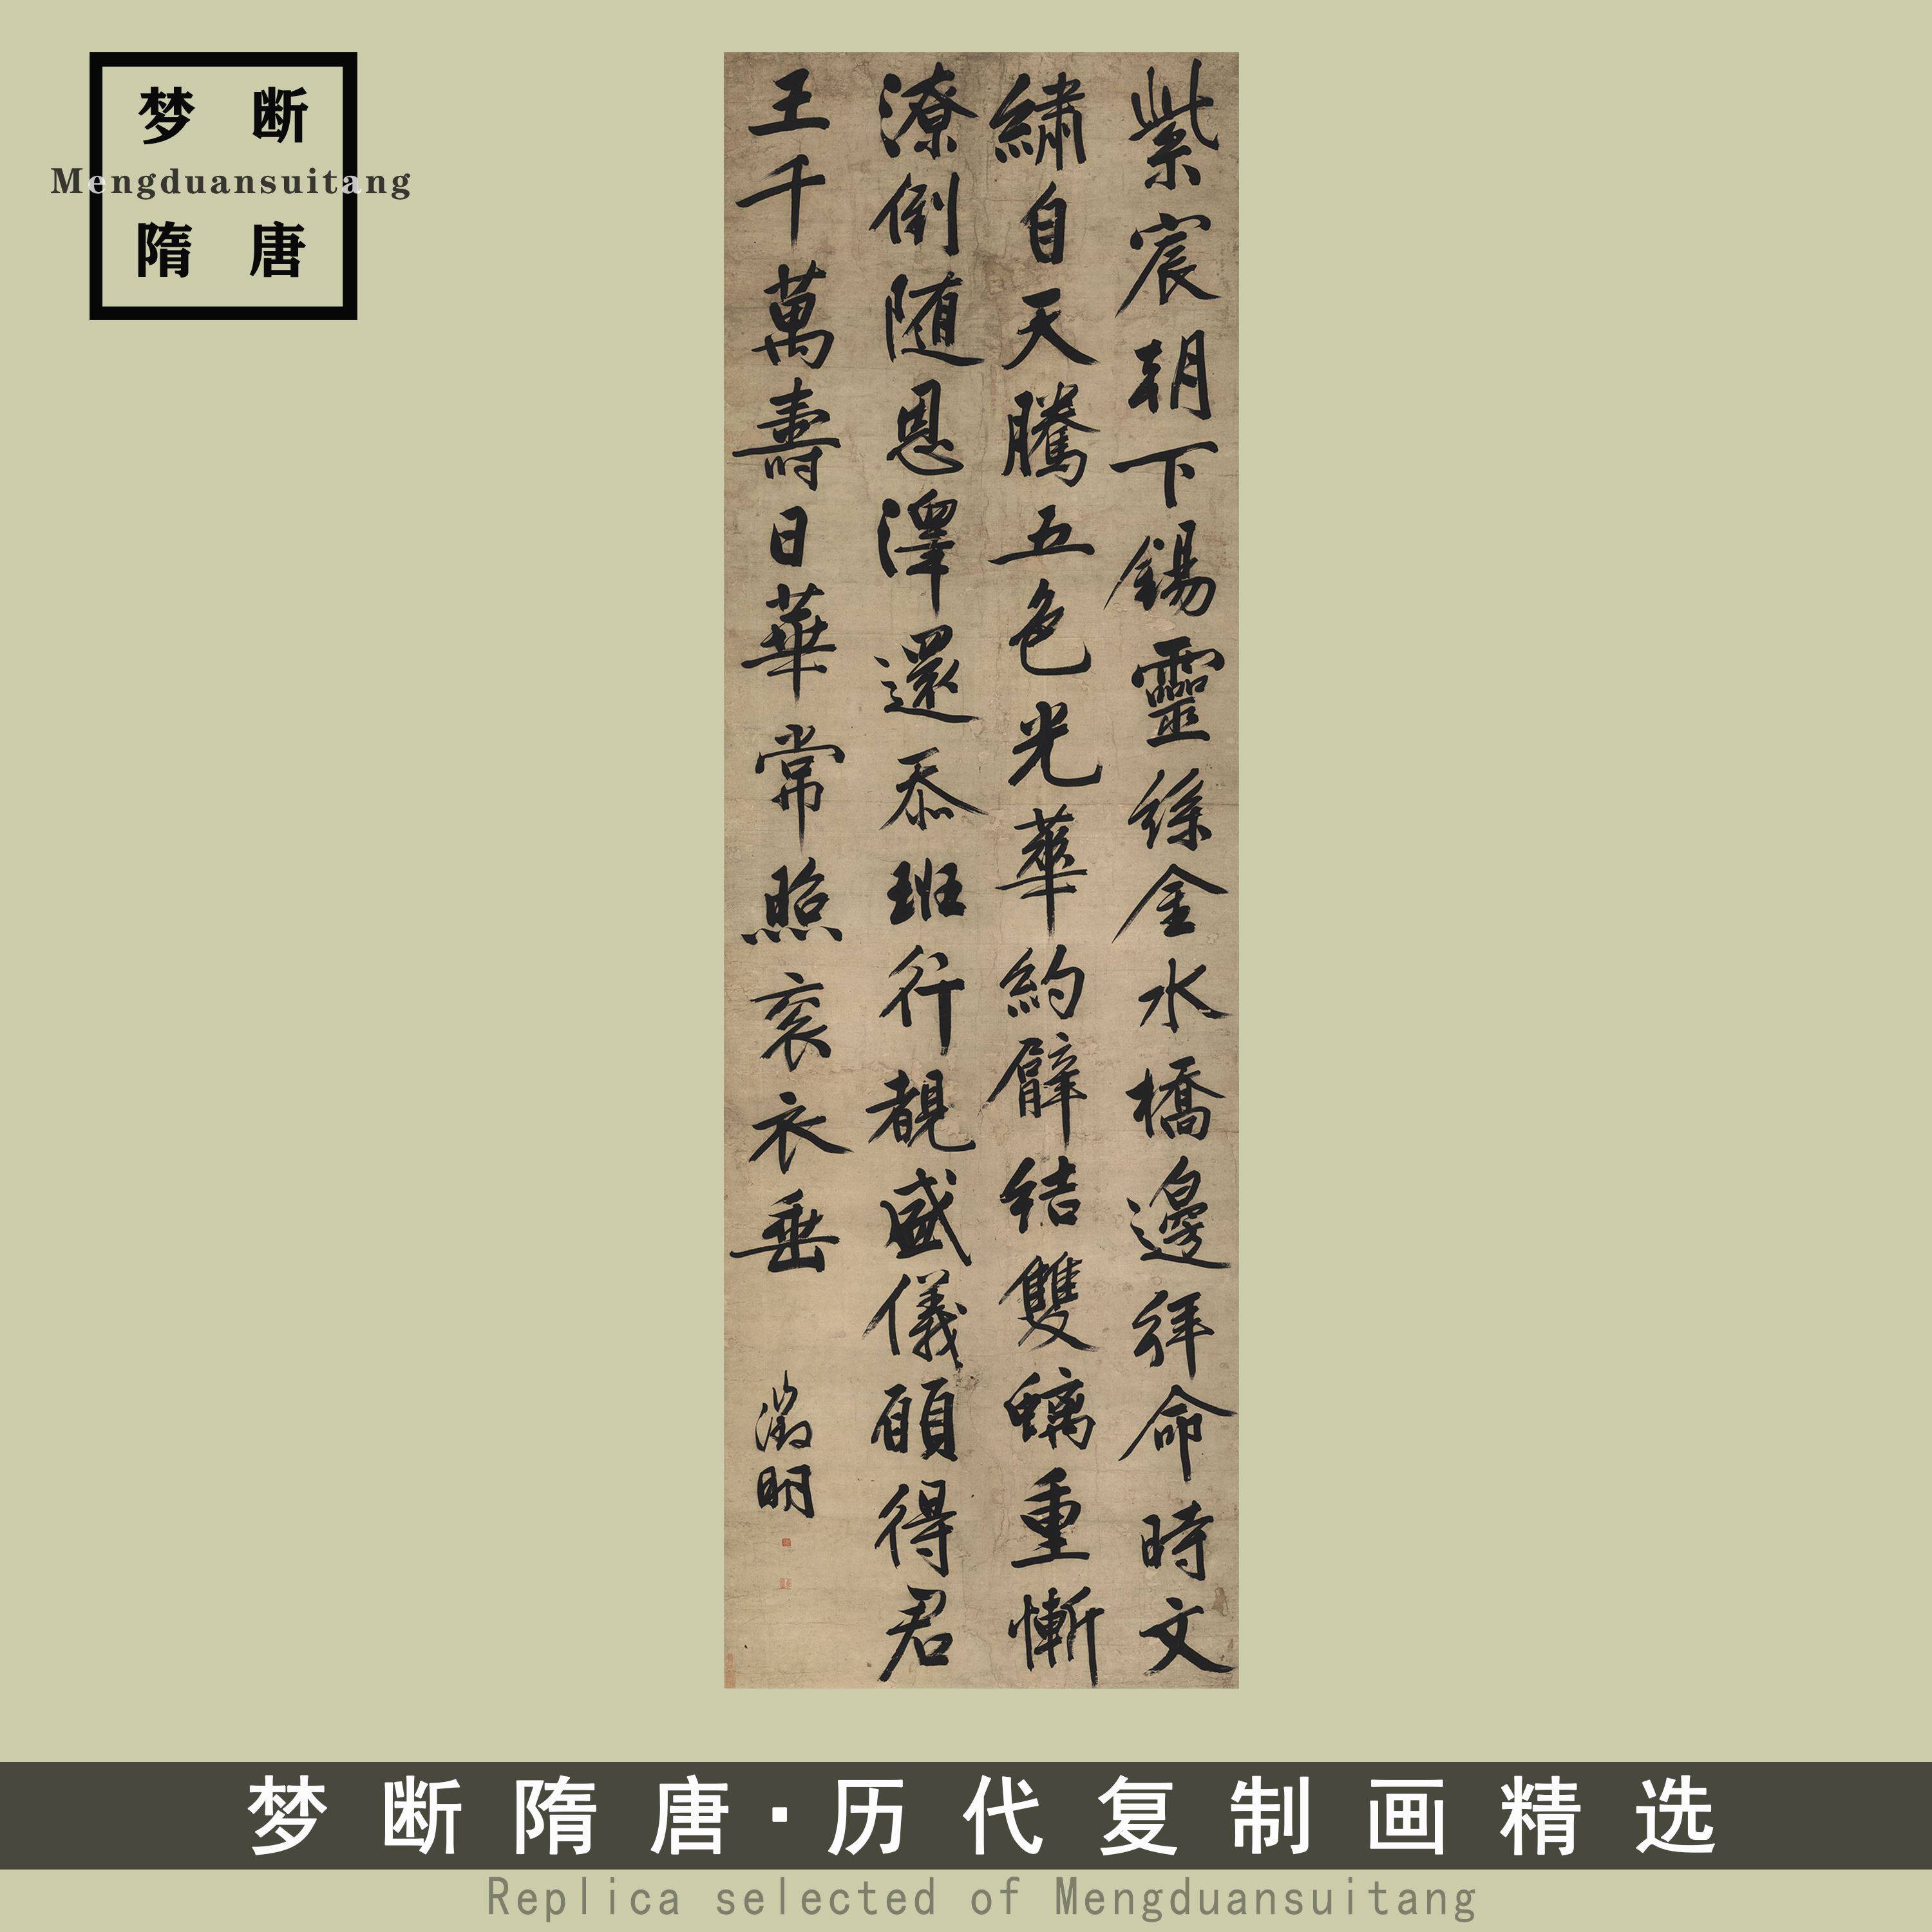 梦断
Mengduansuitang
隋唐
紫宸朝下錫靈絲金水橋邊拜命時文
繡自天騰五色光華約臂結雙螭重慚
潦倒随恩澤還忝班行覩盛儀願得君
王千萬壽日華常照衮衣垂
徵明
梦断隋唐·历代复制画精选
Replica selected of Mengduansuitang